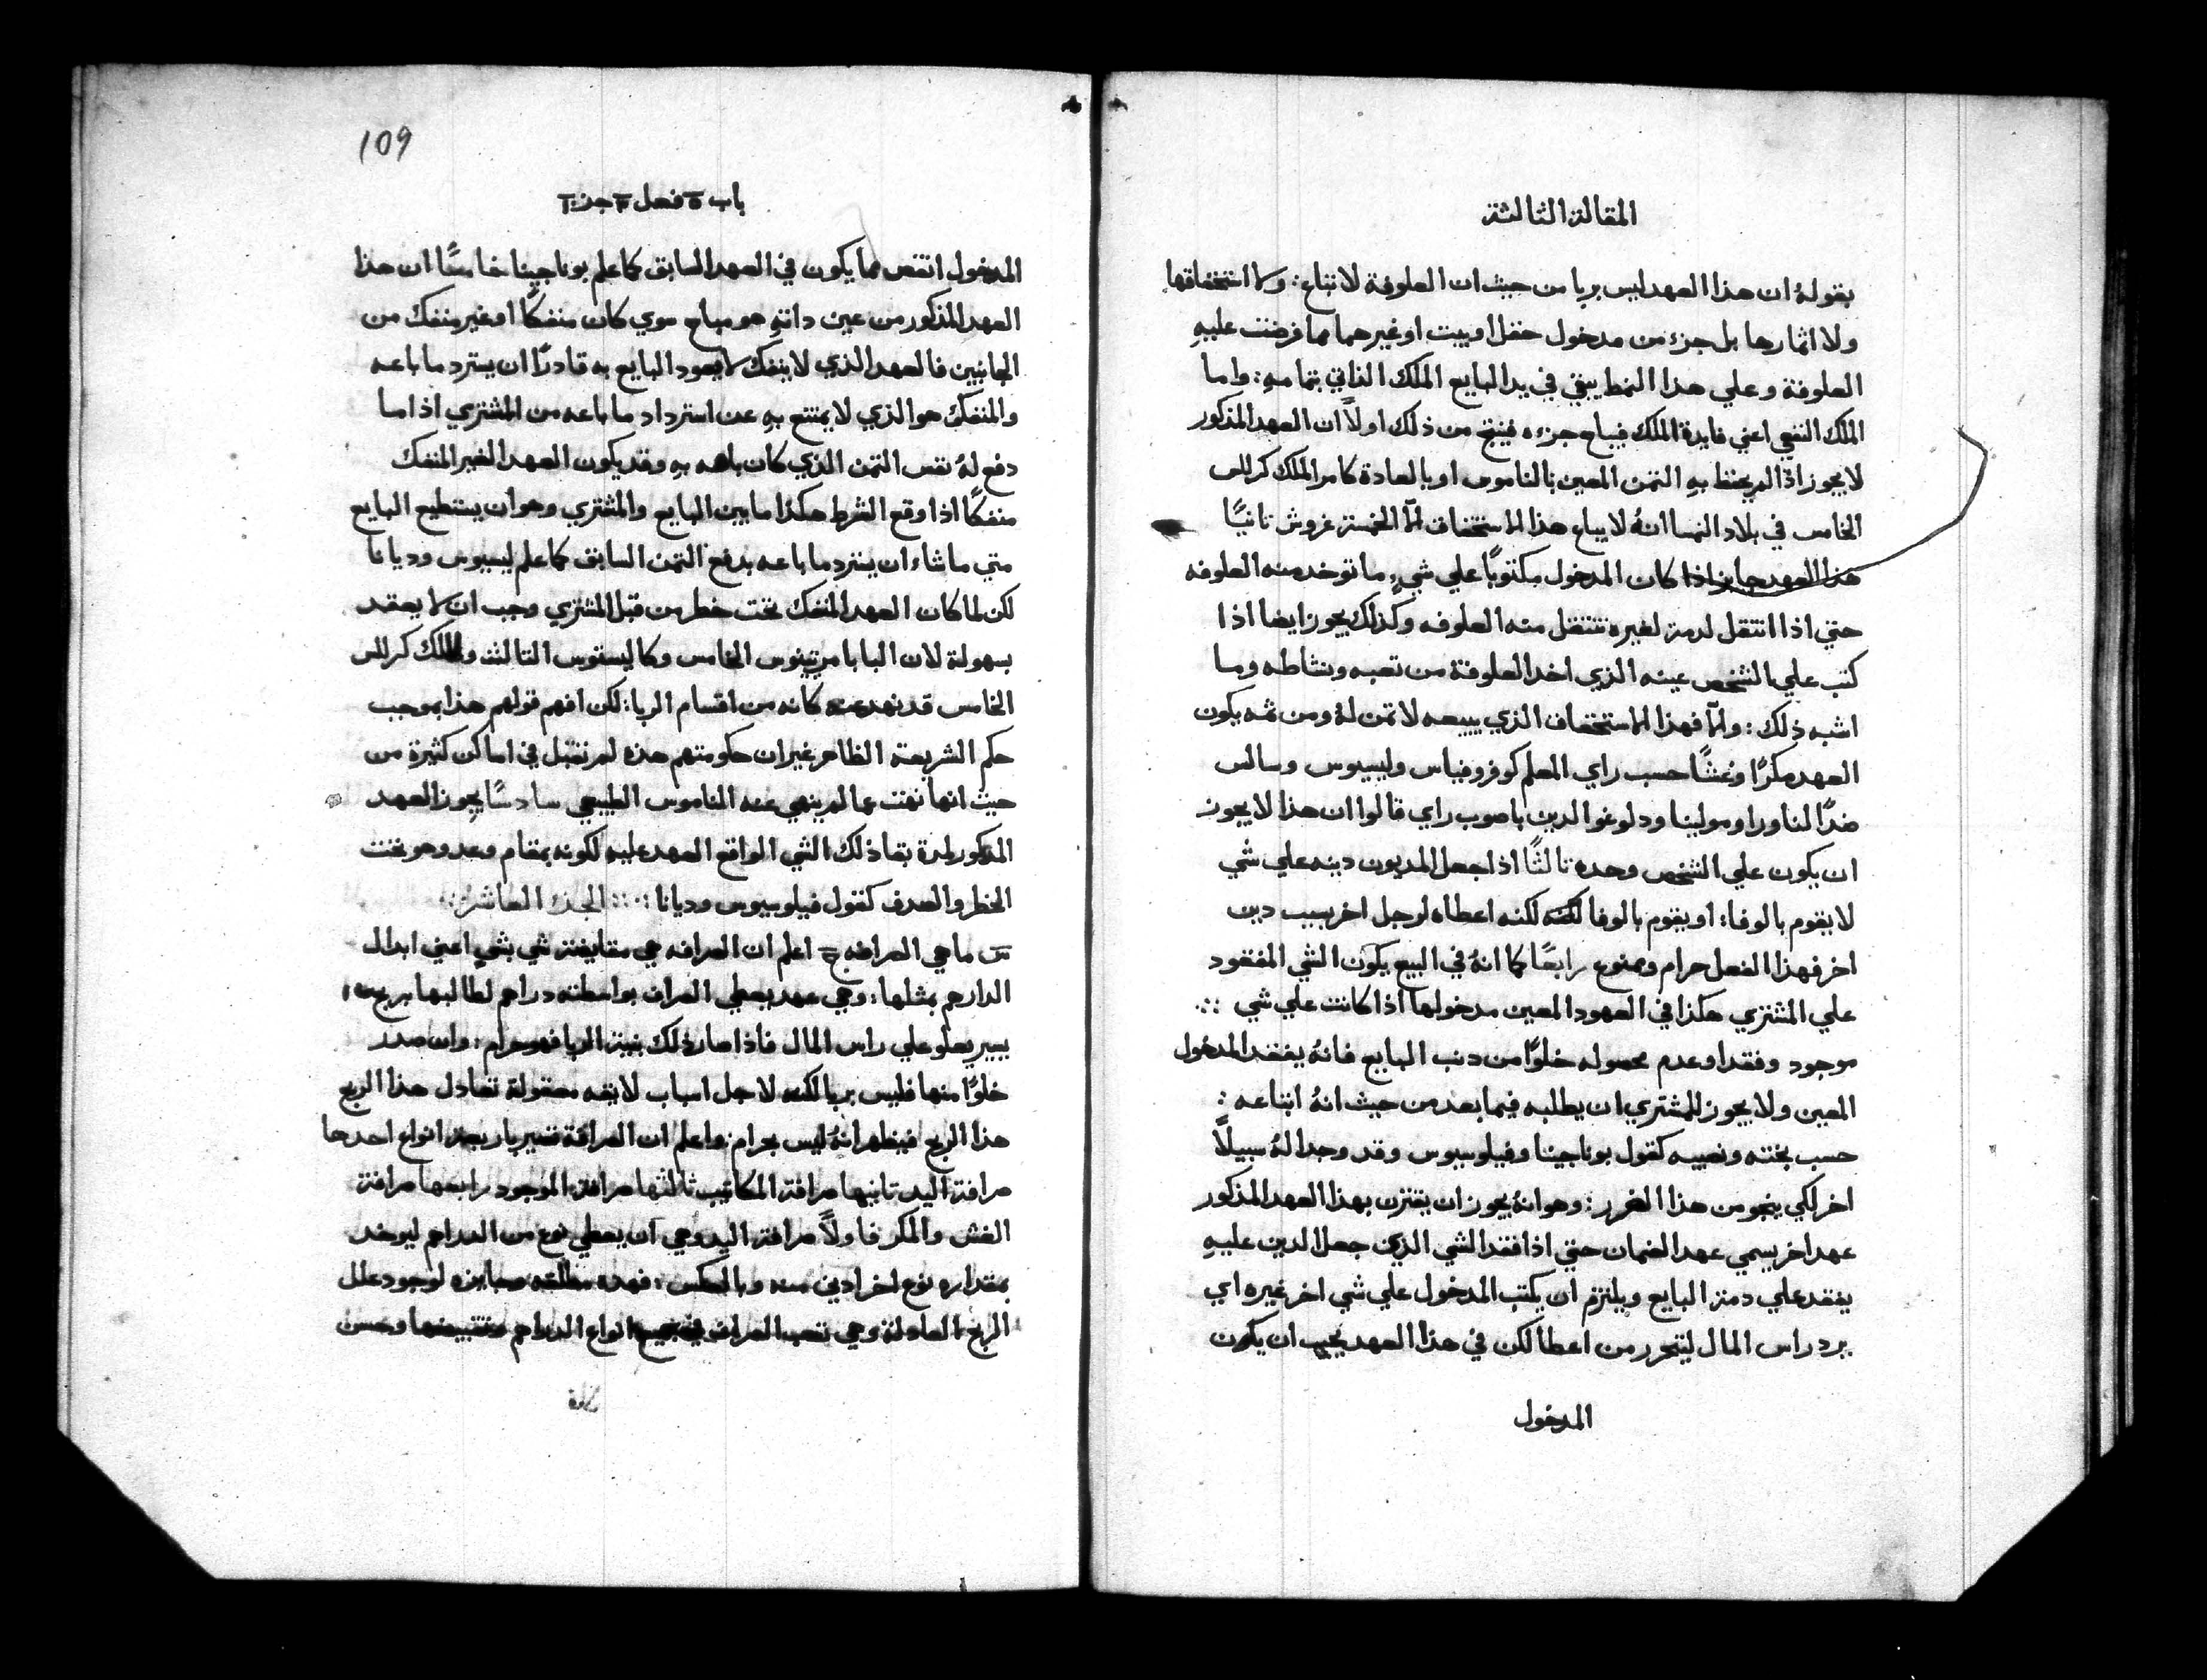 المقالة الثالثة
بقولهُ ان هذا العهد ليس بربا من حيث ان العلوفة لا تباع: ولا استحقاقها
ولا اثمارها بل جزء من مدخول حقل او بيت او غيرهما مما فرضت عليهِ
العلوفة وعلي هذا النمط يبقي في يد البايع الملك الذاتي بتمامهِ: واما
الملك النفعي اعني فايدة الملك فيباع جزءه فينتج من ذلك اولاً ان العهد المذكور
لا يجوز اذا لم يحتفظ بهِ الثمن المعين بالناموس او بالعادة كامر الملك كرلس
الخامس في بلاد النمسا انهُ لا يباع هذا الاستحقاق الّا الخمسة غروش ثانيًا
هذا العهد جايز اذا كان المدخول مكتوبًا علي شيٍ ما توخد منه العلوفه
حتي اذا انتقل لدمة لغيره تنتقل منه العلوفه وكذلك يجوز ايضا اذا
كتب علي الشخص عينه الذي اخد العلوفة من تعبه ونشاطه وما
اشبه ذلك: والّا فهذا الاستحقاق الذي يبيعه لا ثمن لهُ ومن ثمه يكون
العهد مكرًا وغشًا حسب راي المعلم كوفروفياس وليسيوس وسالس
ضدًا لناورا ومولينا ودلوغو الدين باصوب راي قالوا ان هذا لا يجوز
ان يكون علي الشخص وحده ثالثًا اذا جعل المديون دينه علي شي
لا يقوم بالوفا: او يقوم بالوفا لكنه لكنه اعطاه لرجل اخر بسبب دين
اخر فهذا الفعل حرام وممنوع رابعًا كما انهُ في البيع يكون الشي المفقود
علي المشتري هكذا في العهود المعين مدخولها اذا كانت علي شي ∴
موجود وفقد او عدم محصوله خلوًا من دنب البايع فانهُ يفقد المدخول
المعين ولا يجوز للمشتري ان يطلبه فيما بعد من حيث انهُ ابتاعه:
حسب بخته ونصيبه كقول بوناجينا وفيلوسيوس وقد وجدا لهُ سبيلاً
اخر لكي ينجو من هذا الضرر: وهو انهُ يجوز ان يقترن بهذا العهد المذكور
عهد اخر يسمي عهد الضمان حتي اذا فقد الشي الذي جعل الدين عليهِ
يفقد علي دمة البايع ويلتزم ان يكتب المدخول علي شي اخر غيره اي
يرد راس المال ليتحرر من اعطا لكن في هذا العهد يجب ان يكون
المدخول
109
باب ٥ فصل ٣ جز
المدخول انقص مما يكون في العهد السابق كما علم بوناجينا خامسًا ان هذا
العهد المذكور من عين داتهِ هو مباح سوي كان منفكًا او غير منفك من
الجانبين فالعهد الذي لا ينفك لا يعود البايع به قادرًا ان يسترد ما باعه
والمنفك هو الذي لا يمتنع بهِ عن استرداد ما باعه من المشتري اذا ما
دفع لهُ نفس الثمن الذي كان باعه بهِ وقد يكون العهد الغير المنفك
منفكًا اذا وقع الشرط هكذا ما بين البايع والمشتري وهو ان يستطيع البايع
متي ما شاء ان يسترد ما باعه بدفع الثمن السابق كما علم ليسيوس وديانا
لكن لما كان العهد المنفك تحت خطر من قبل المشتري وجب ان لا يعقد
بسهولة لان البابا مرتينوس الخامس وكاليستوس الثالث والملك كرلس
الخامس قد نهو عنه كانه من اقسام الربا: لكن افهم قولهم هذا بموجب
حكم الشريعة الظاهر غير ان حكومتهم هذه لم تقبل في اماكن كثيرة من
حيث انها نهت عما لم ينهي عنه الناموس الطبيعي سادسًا يجوز العهد
المذكور لمدة بقا ذلك الشي الواقع العهد عليه لكونه بمقام وعد وهو تحت
الخطر والصدف كقول فيلوسيوس وديانا ∴ الجزء العاشر ∴
س ما هي الصرافه ج اعلم ان الصرافه هي مقايضة شي بشيٍ اعني ابدال
الدارهم بمثلها: وهي عهد يعطي الصراف بواسطته دراهم لطالبها بربح
يسير يعلو علي راس المال فاذا صار ذلك بنية الربا فهو حرام: وان صدر
خلوًا منها فليس بربا لكنه لاجل اسباب لايقه معقولة تعادل هذا الربح
هذا الربح فيظهر انهُ ليس بحرام: واعلم ان الصرافة تصير باربعة انواع احدها
صرافة اليد ثانيها صرافة المكاتيب ثالثها صرافة الموجود رابعها صرافة
الغش والمكر فاولاً صرافة اليد وهي ان يعطي نوع من الدراهم ليوخد
بمقداره نوع اخر ادني منه وبالعكس: فهده جايزه لوجود علل
الربح العادلة وهي تعب الصراف في جميع انواع الدراهم وحسن